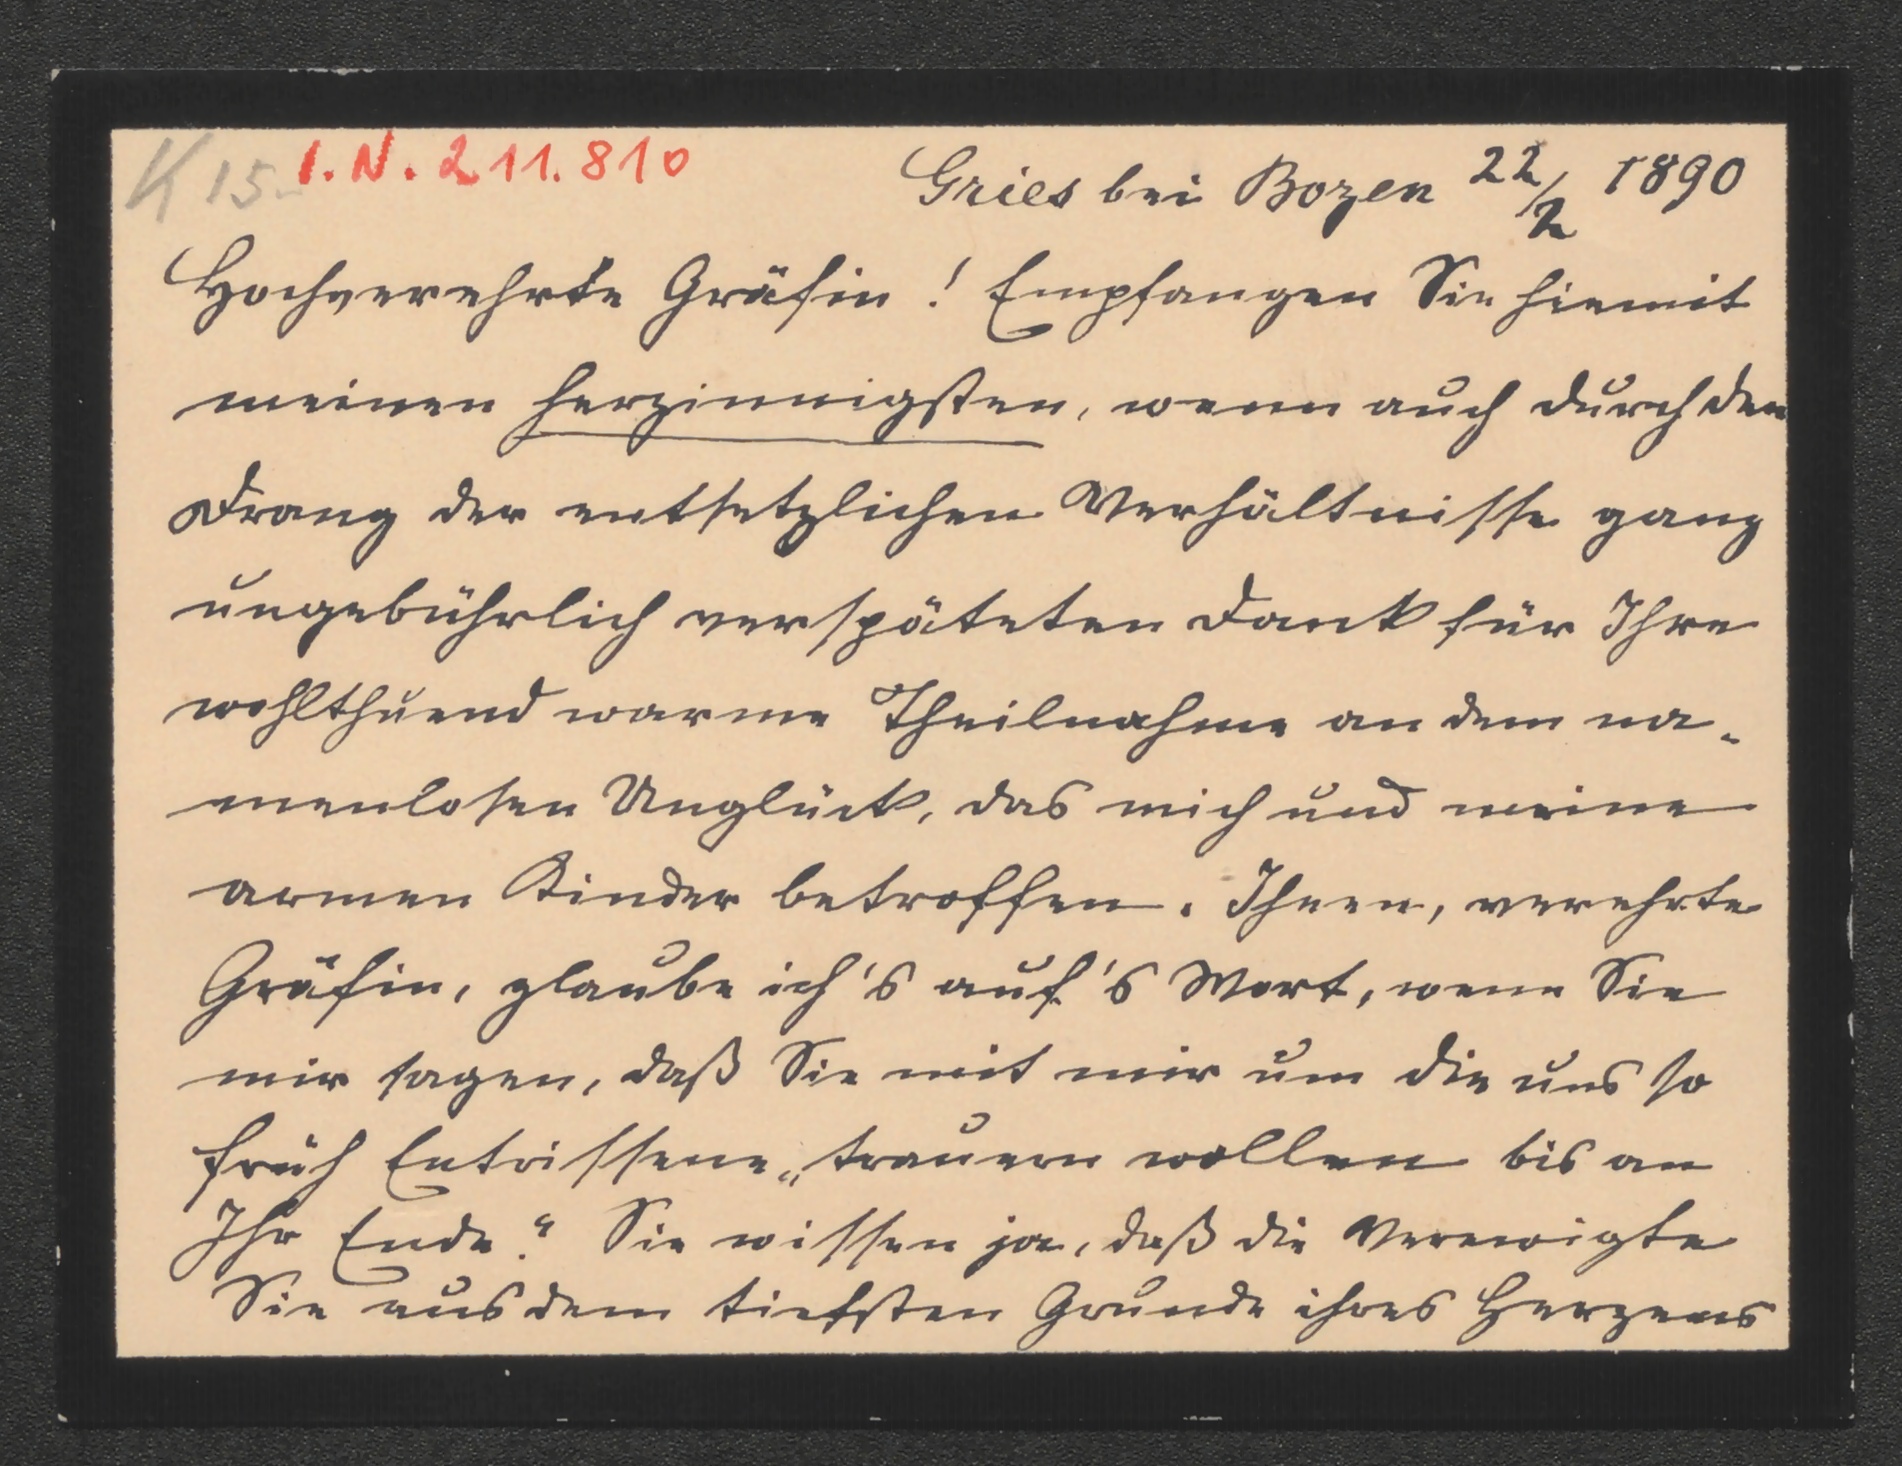 K 15- I.N. 211.810
Gries bei Bozen 22/2 1890
Hochverehrte Gräfin! Empfangen Sie hiemit
meinen herzinnigsten, wenn auch durch den
Drang der entsetzlichen Verhältnisse ganz
ungebührlich verspäteten Dank für Ihre
wohlthuend warme Theilnahme an dem na-
menlosen Unglück, das mich und meine
armen Kinder betroffen. Ihnen, verehrte
Gräfin, glaube ich's auf's Wort, wenn Sie
mir sagen, daß Sie mit mir um die uns so
früh Entrissene „trauern wollen bis an
Ihr Ende.“ Sie wissen ja, daß die Verewigte
Sie aus dem tiefsten Grunde ihres Herzens